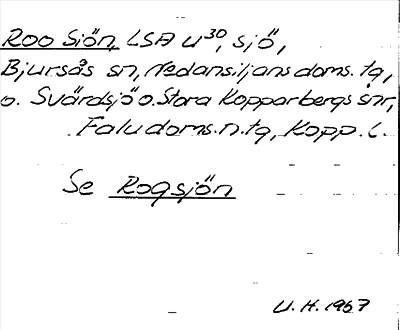 Roo Siön, LSA U30, sjö,
Bjursås sn, Nedansiljans doms. tg,
o. Svärdsjö o. Stora Kopparbergs snr,
Falu doms. n. tg, Kopp. l.
Se Rogsjön
U. H. 1967